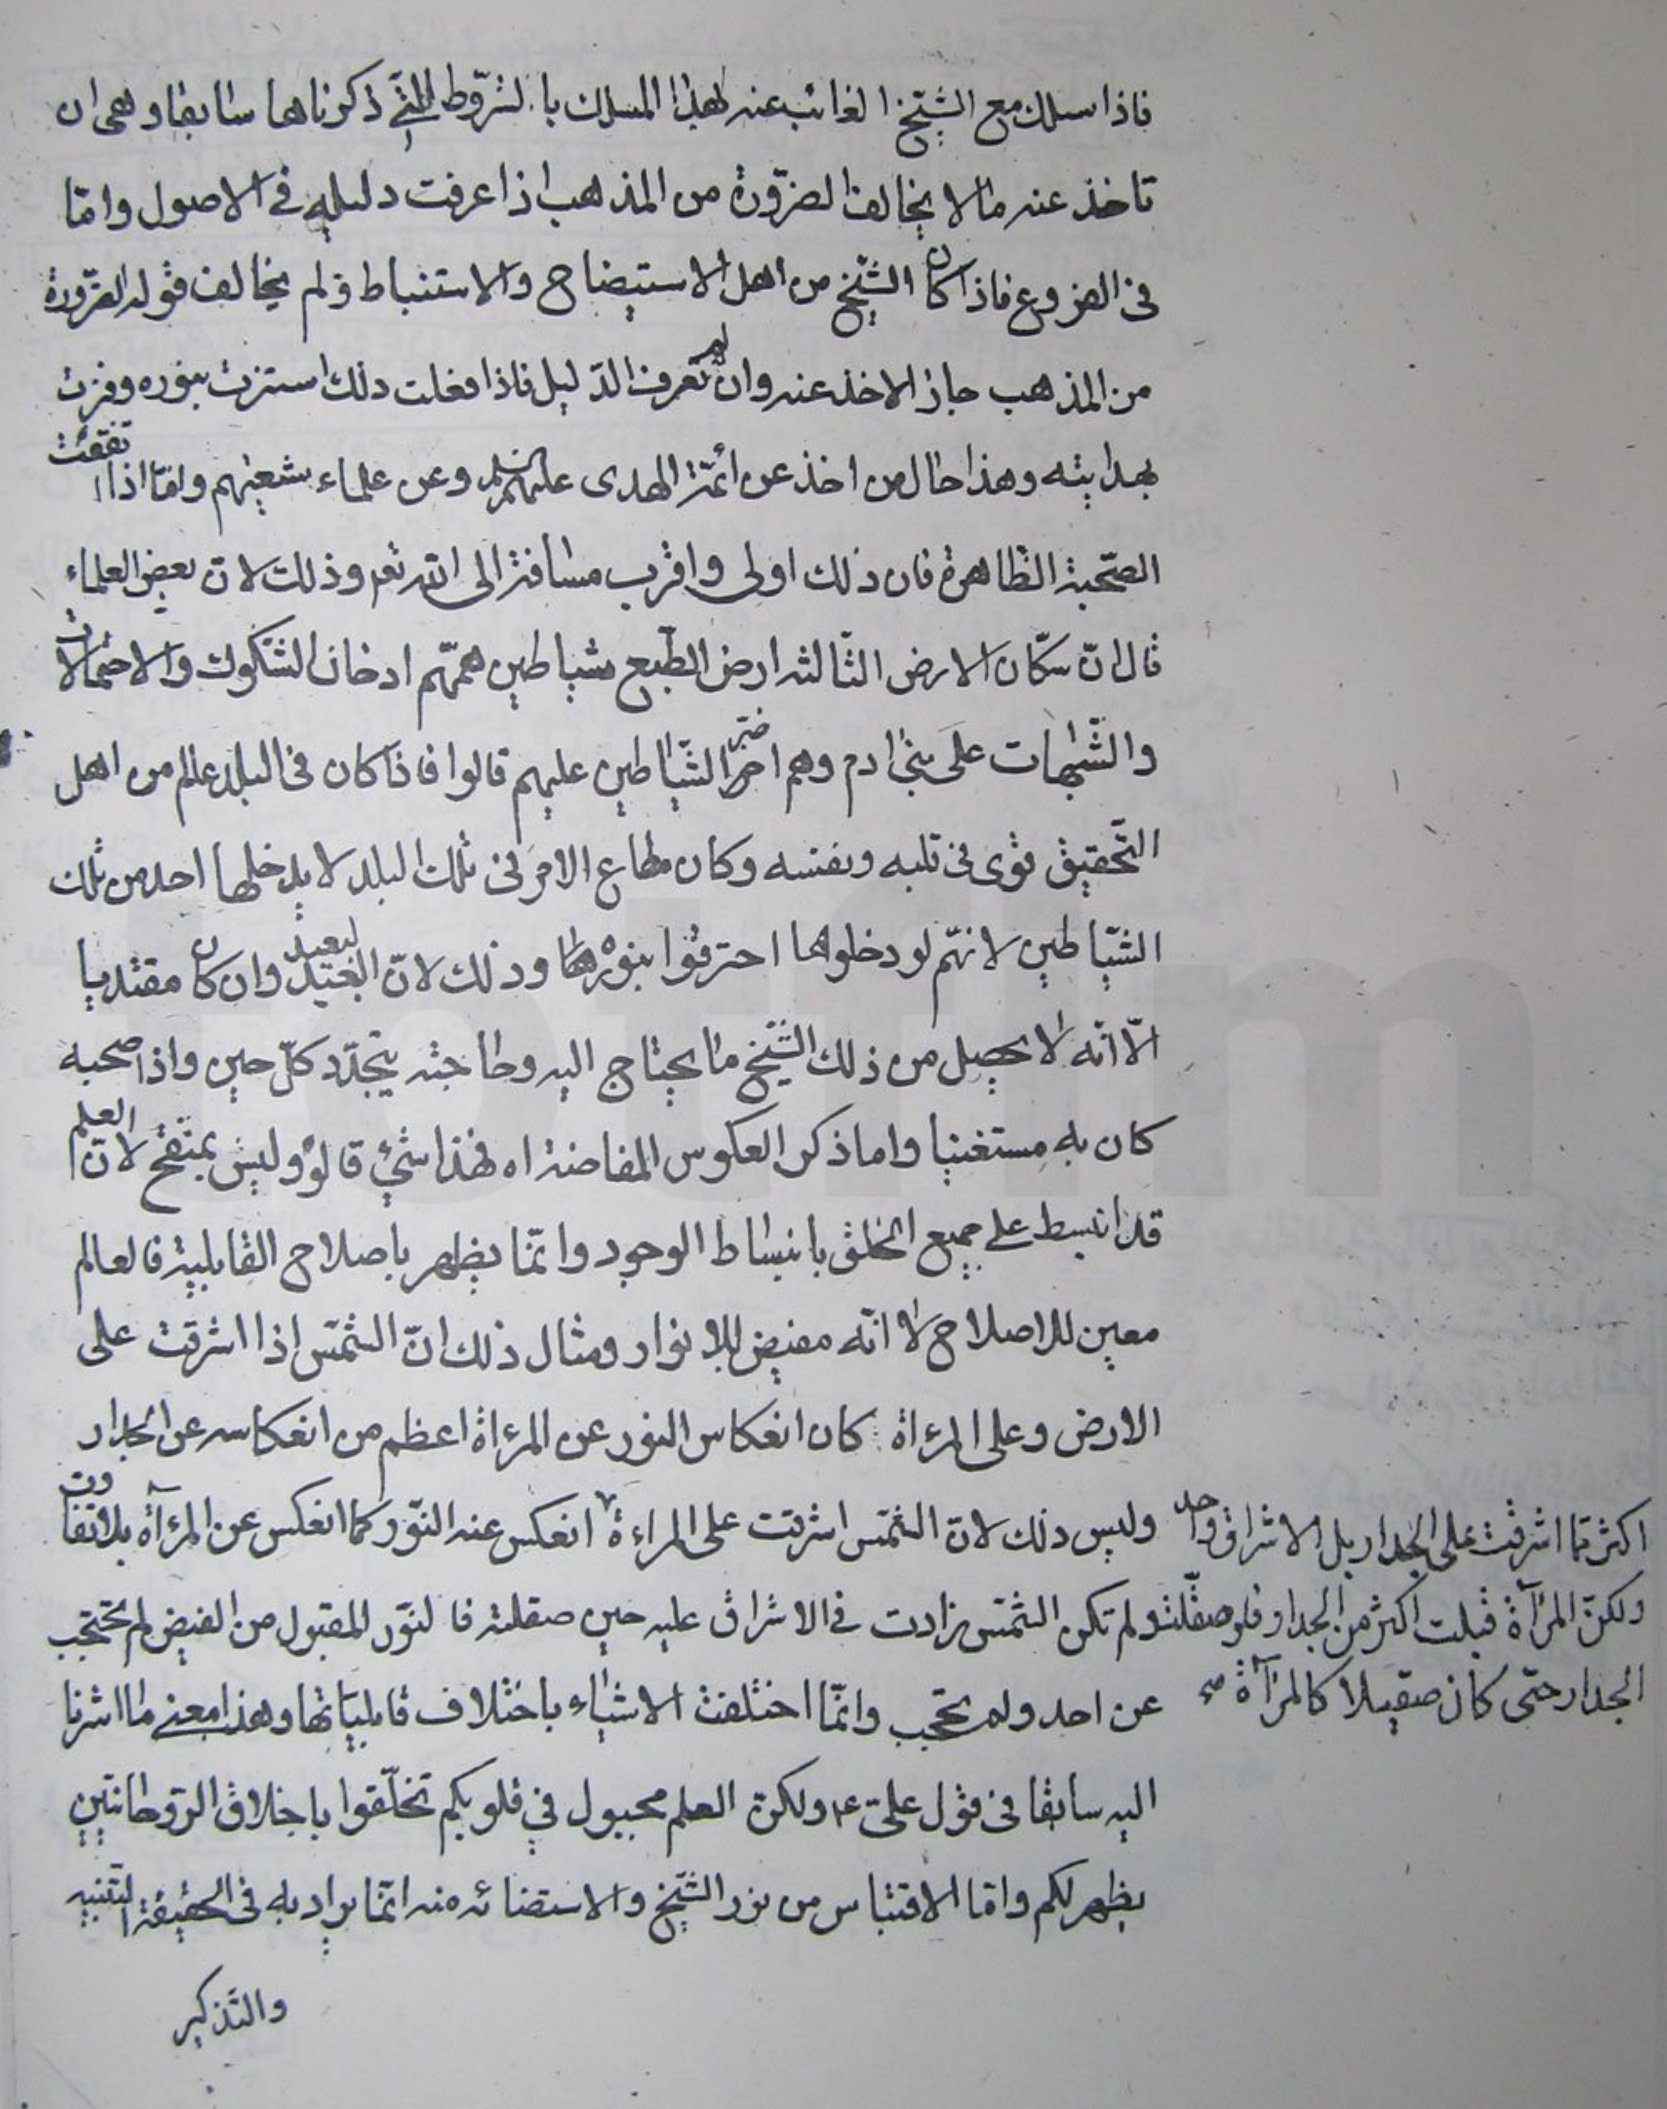 فاذا سلك مع الشيخ الغائب عنه لهذا المسلك بالشروط التي ذكرناها سابقا وهي ان
تاخذ عنه ما لا يخالف الضرورة من المذهب اذا عرفت دليله في الاصول وامّا
في الفروع فاذا كان الشيخ من اهل الاستيضاح والاستنباط ولم يخالف قوله الضرورة
من المذهب جاز الاخذ عنه وان لم تعرف الدليل فاذا فعلت ذلك استنرت بنوره وفزت
بهدايته وهذا حال من اخذ عن ائمّة الهدى عليهم السلم وعن علماء شيعتهم وامّا اذا اتفقت
الصّحبة الظاهرة فان ذلك اولى واقرب مسافة الى الله تعه وذلك لانّ بعض العلماء
قال انّ سكّان الارض الثالثه ارض الطّبع شياطين همّهم ادخال الشكوك والاحتمالات
والشّبهات على بني ادم وهم اضرّ الشّياطين عليهم قالوا فاذا كان في البلد عالم من اهل
التّحقيق قوى في قلبه ونفسه وكان مطاع الامر في تلك البلد لا يدخلها احد من تلك
الشّياطين لانّهم لو دخلوها احترقوا بنورها وذلك لانّ البعيد وان كان مقتديا
الّا انّه لا يحصل من ذلك الشّيخ ما يحتاج اليه وحاجته يتجدّد كلّ حين واذا صحبه
كان به مستغنيا واما ذكر العكوس المفاضة اه فهذا شيء قالوه وليس بمتّجه لانّ العلم
قد انبسط على جميع الخلق بانبساط الوجود وانّما يظهر باصلاح القابلية فالعالم
معين للاصلاح لا انّه مفيض للانوار ومثال ذلك انّ الشّمس اذا اشرقت على
الارض وعلى المرءاة كان انعكاس النور عن المرءاة اعظم من انعكاسه عن الجدار
وليس ذلك لانّ الشّمس اشرقت على المراءة انعكس عنه النّور كما انعكس عن المرءآة بلا تفاوت
اكثر ممّا اشرقت على الجدار بل الاشراق واحد
ولكنّ المرآة قبلت اكثر من الجدار فلو صقّلت
الجدار حتى كان صقيلا كالمرآة صح
ولم تكن الشّمس زادت في الاشراق عليه حين صقلته فالنّور المقبول من الفيض لم يحتجب
عن احد ولم يحجب وانّما اختلفت الاشياء باختلاف قابليّاتها وهذا معنى ما اشرنا
اليه سابقا في قول عليّ ع ولكنّ العلم مجبول في قلوبكم تخلّقوا باخلاق الرّوحانيّين
يظهر لكم وامّا الاقتباس من نور الشّيخ والاستضائه منه انّما يراد به في الحقيقة التنبيه
والتّذكير